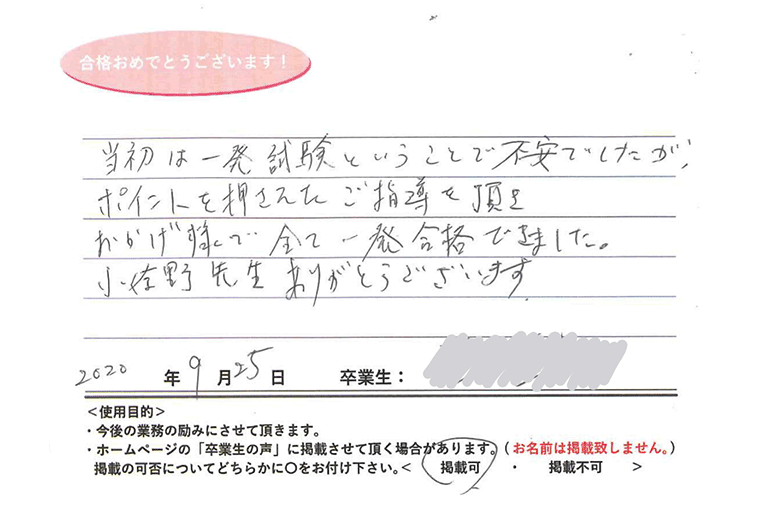 合格おめでとうございます！
当初は一発試験ということで不安でしたが、
ポイントを押さえたご指導を頂き
おかげ様で全て一発合格できました。
小佐野先生ありがとうございます
2020 年 9 月 25 日 卒業生：
＜使用目的＞
・今後の業務の励みにさせて頂きます。
・ホームページの「卒業生の声」に掲載させて頂く場合があります。（お名前は掲載致しません。）
掲載の可否についてどちらかに〇をお付け下さい。＜ 掲載可 ・ 掲載不可 ＞